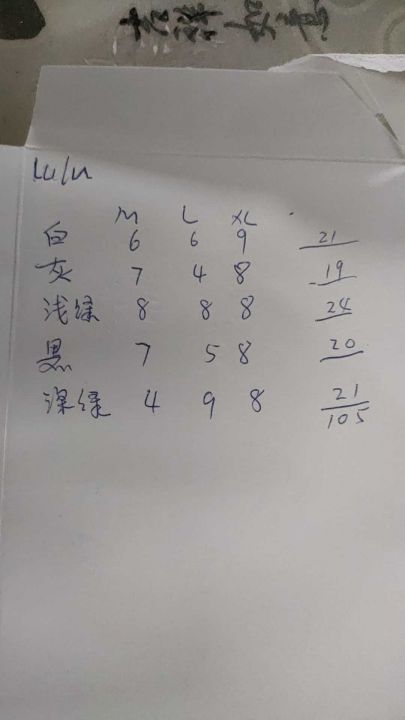 Lulu
M L XL
白 6 6 9 21
灰 7 4 8 19
浅绿 8 8 8 24
黑 7 5 8 20
深绿 4 9 8 21
105